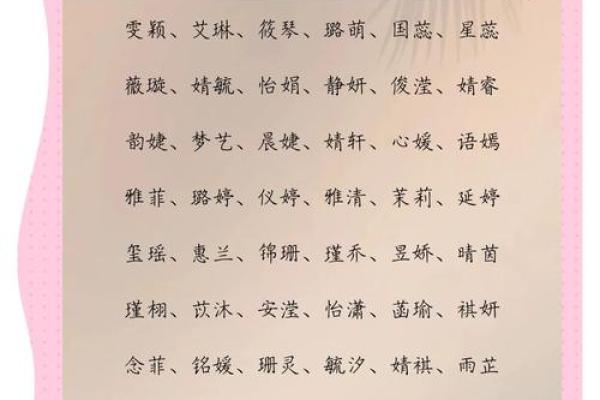 雯颖、艾琳、筱琴、璐萌、国蕊、星蕊
薇璇、婧毓、怡娟、静妍、俊滢、婧睿
韵婕、梦艺、晨婕、婧轩、心媛、语嫣
雅菲、璐婷、仪婷、雅清、茉莉、延婷
玺瑶、惠兰、锦珊、瑾乔、昱娇、晴茵
瑾栩、苡沐、安滢、怡潇、菡瑜、祺妍
念菲、铭媛、珊灵、毓汐、婧祺、雨芷